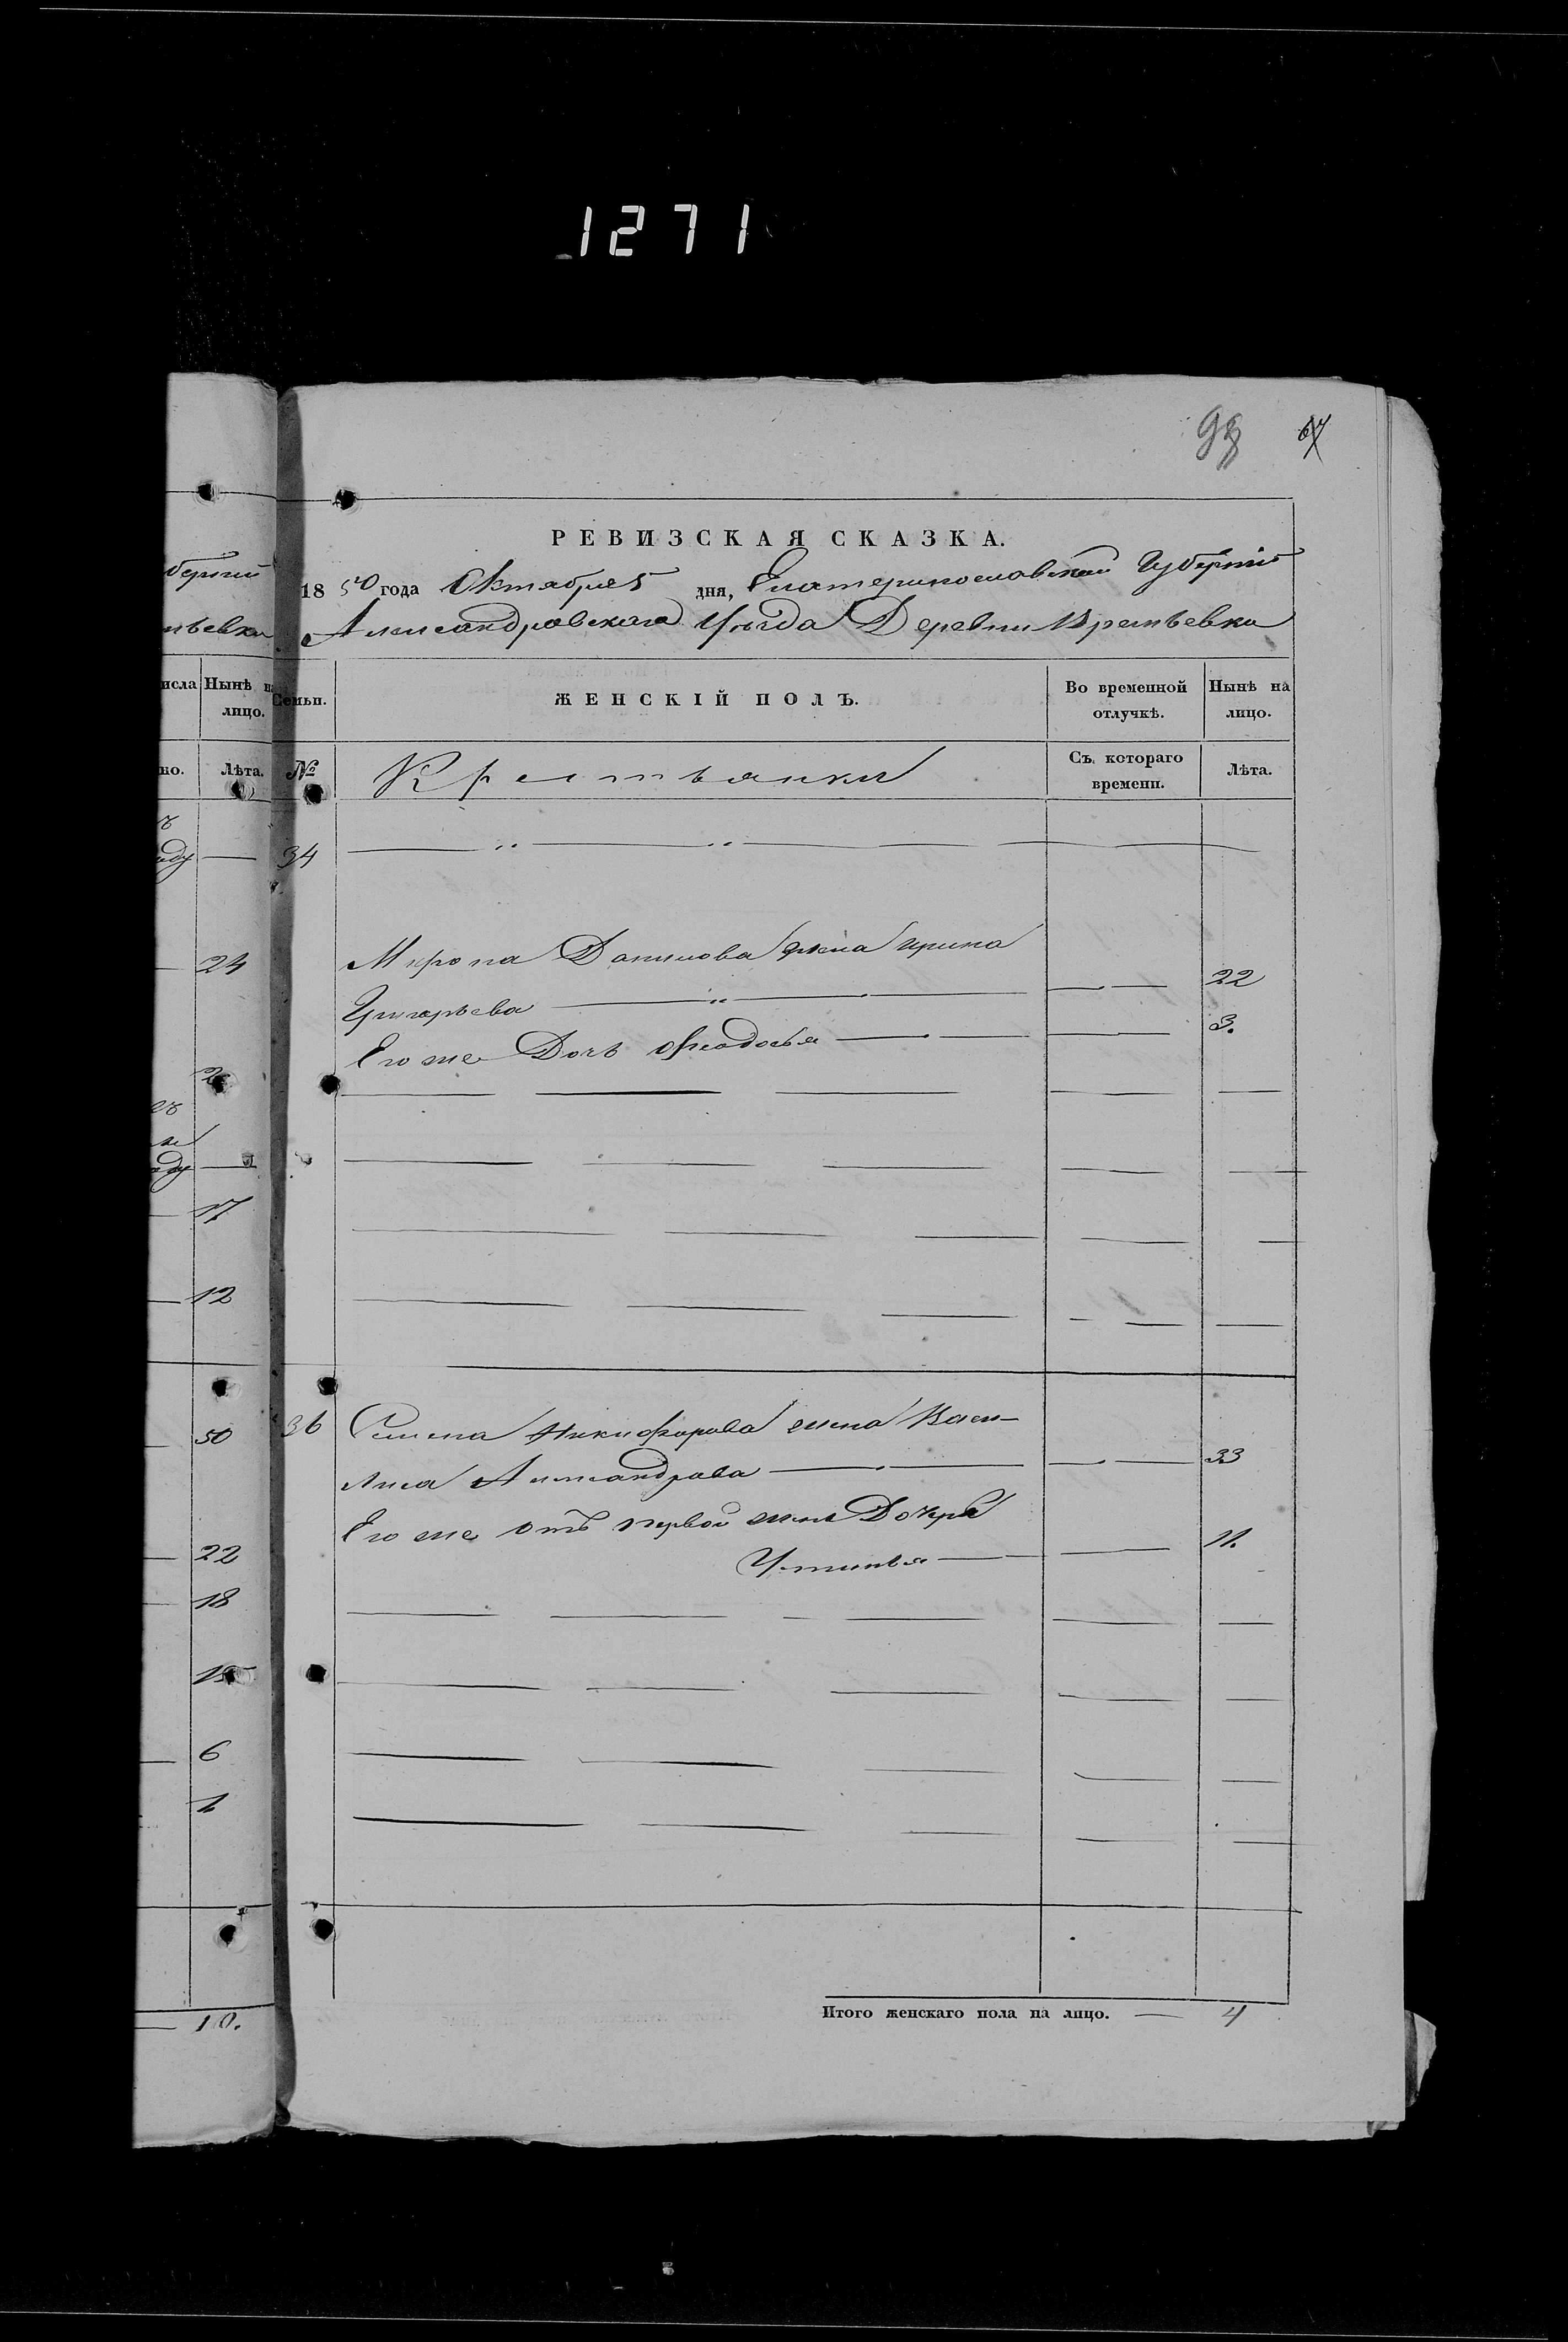 1271
99 67
РЕВИЗСКАЯ СКАЗКА.
1850 года Октября 5 дня, Екатеринославской Губернии
Александровскаго Уѣзда Деревни Времьевки
Семьи. ЖЕНСКІЙ ПОЛЪ. Во временной отлучкѣ. Нынѣ на лицо.
№ Крестьянки Съ котораго времени. Лѣта.
34
Мирона Данилова жена Ирина
Григорьева 22
Его же Дочь Феодосья 3.
36 Семена Никифорова жена Васи-
лиса Александрова 33
Его же отъ первой жены Дочерь
Устинья 11.
Итого женскаго пола на лицо. 4
губерніи
Нынѣ на лицо.
Лѣта.
24
17
12
50
22
18
15
6
1
10.